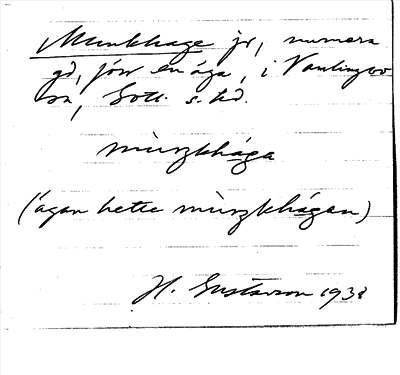 Munkhage jr, numera
gd, förr en äga, i Vamlingbo
sn, Gotl. s. hd.
mùŋkhāga
(ägan hette mùŋkhāgan)
H. Gustavson 1938